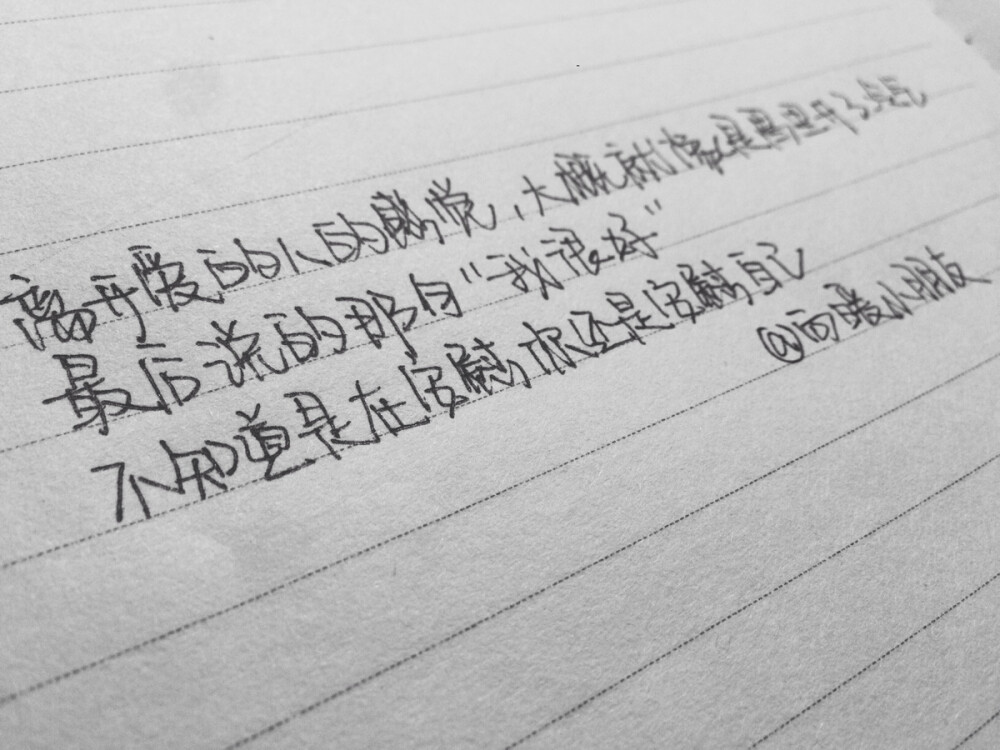 离开爱的人的感觉,大概就像是离开了
最后说的那句“我很好”
不知道是在安慰你还是安慰自己
@西暖小朋友